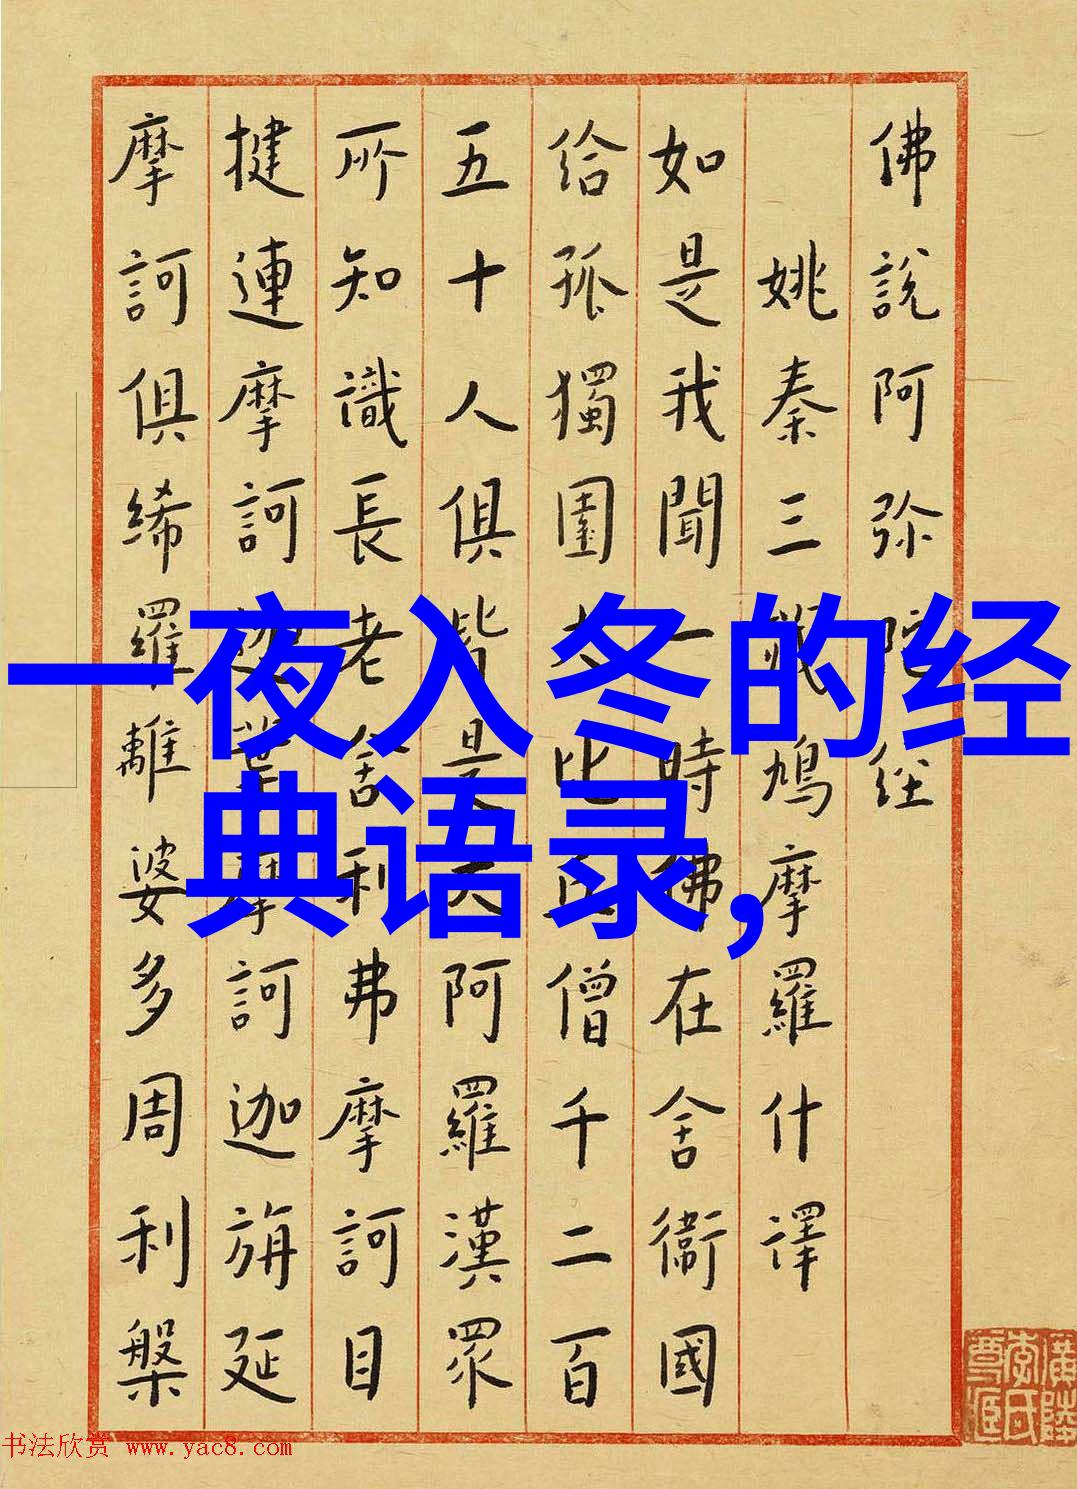 佛說阿弥陀経
姚秦三藏鳩摩羅什譯
如是我聞一時佛在舍衞國
給孤獨園大比丘僧千二百
五十人俱皆是大阿羅漢眾
所知識長老舍利弗摩訶目
揵連摩訶迦葉摩訶迦旃延
摩訶俱絺羅離婆多周利槃
一夜入冬的经
典语录,
书法欣赏 www.yac8.com